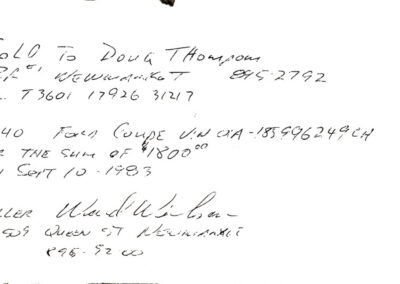 OLD To Doug Thompson
RR #1 NEWMARKET 895-2792
L. T3601 17926 31217
40 FORD COUPE VIN
THE SUM OF $1800.00
SEPT 10 - 1983
LLER
509 QUEEN ST NEWMARKET
895-9200